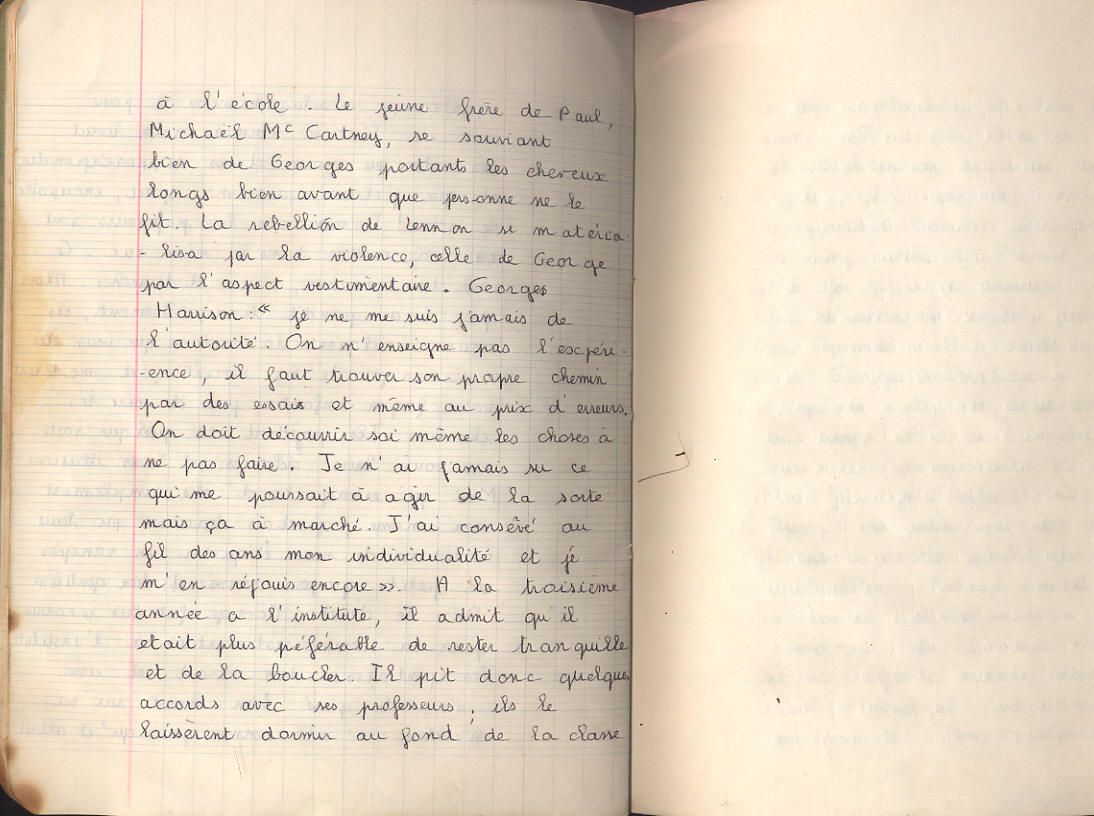 à l'école. Le jeune frère de Paul,
Michaël Mc Cartney, se souviant
bien de Georges portants les cheveux
longs bien avant que personne ne le
fit. La rebellión de Lennon se matéria-
- lisa par la violence, celle de George
par l'aspect vestimentaire. Georges
Harrison : « je ne me suis jamais de
l'autorité. On m'enseigne pas l'expéri-
-ence, il faut trouver son propre chemin
par des essais et même au prix d'erreurs.
On doit découvrir soi même les choses à
ne pas faire. Je n'ai jamais su ce
qui me poussait à agir de la sorte
mais ça à marché. J'ai consêrvé au
fil des ans mon individualité et jé
m'en réjouis encore ». A la troisième
année a l'institute, il admit qu'il
etait plus péférable de rester tranquille
et de la boucler. Il pit donc quelques
accords avec ses professeurs ; ils le
laissèrent dormir au fond de la classe